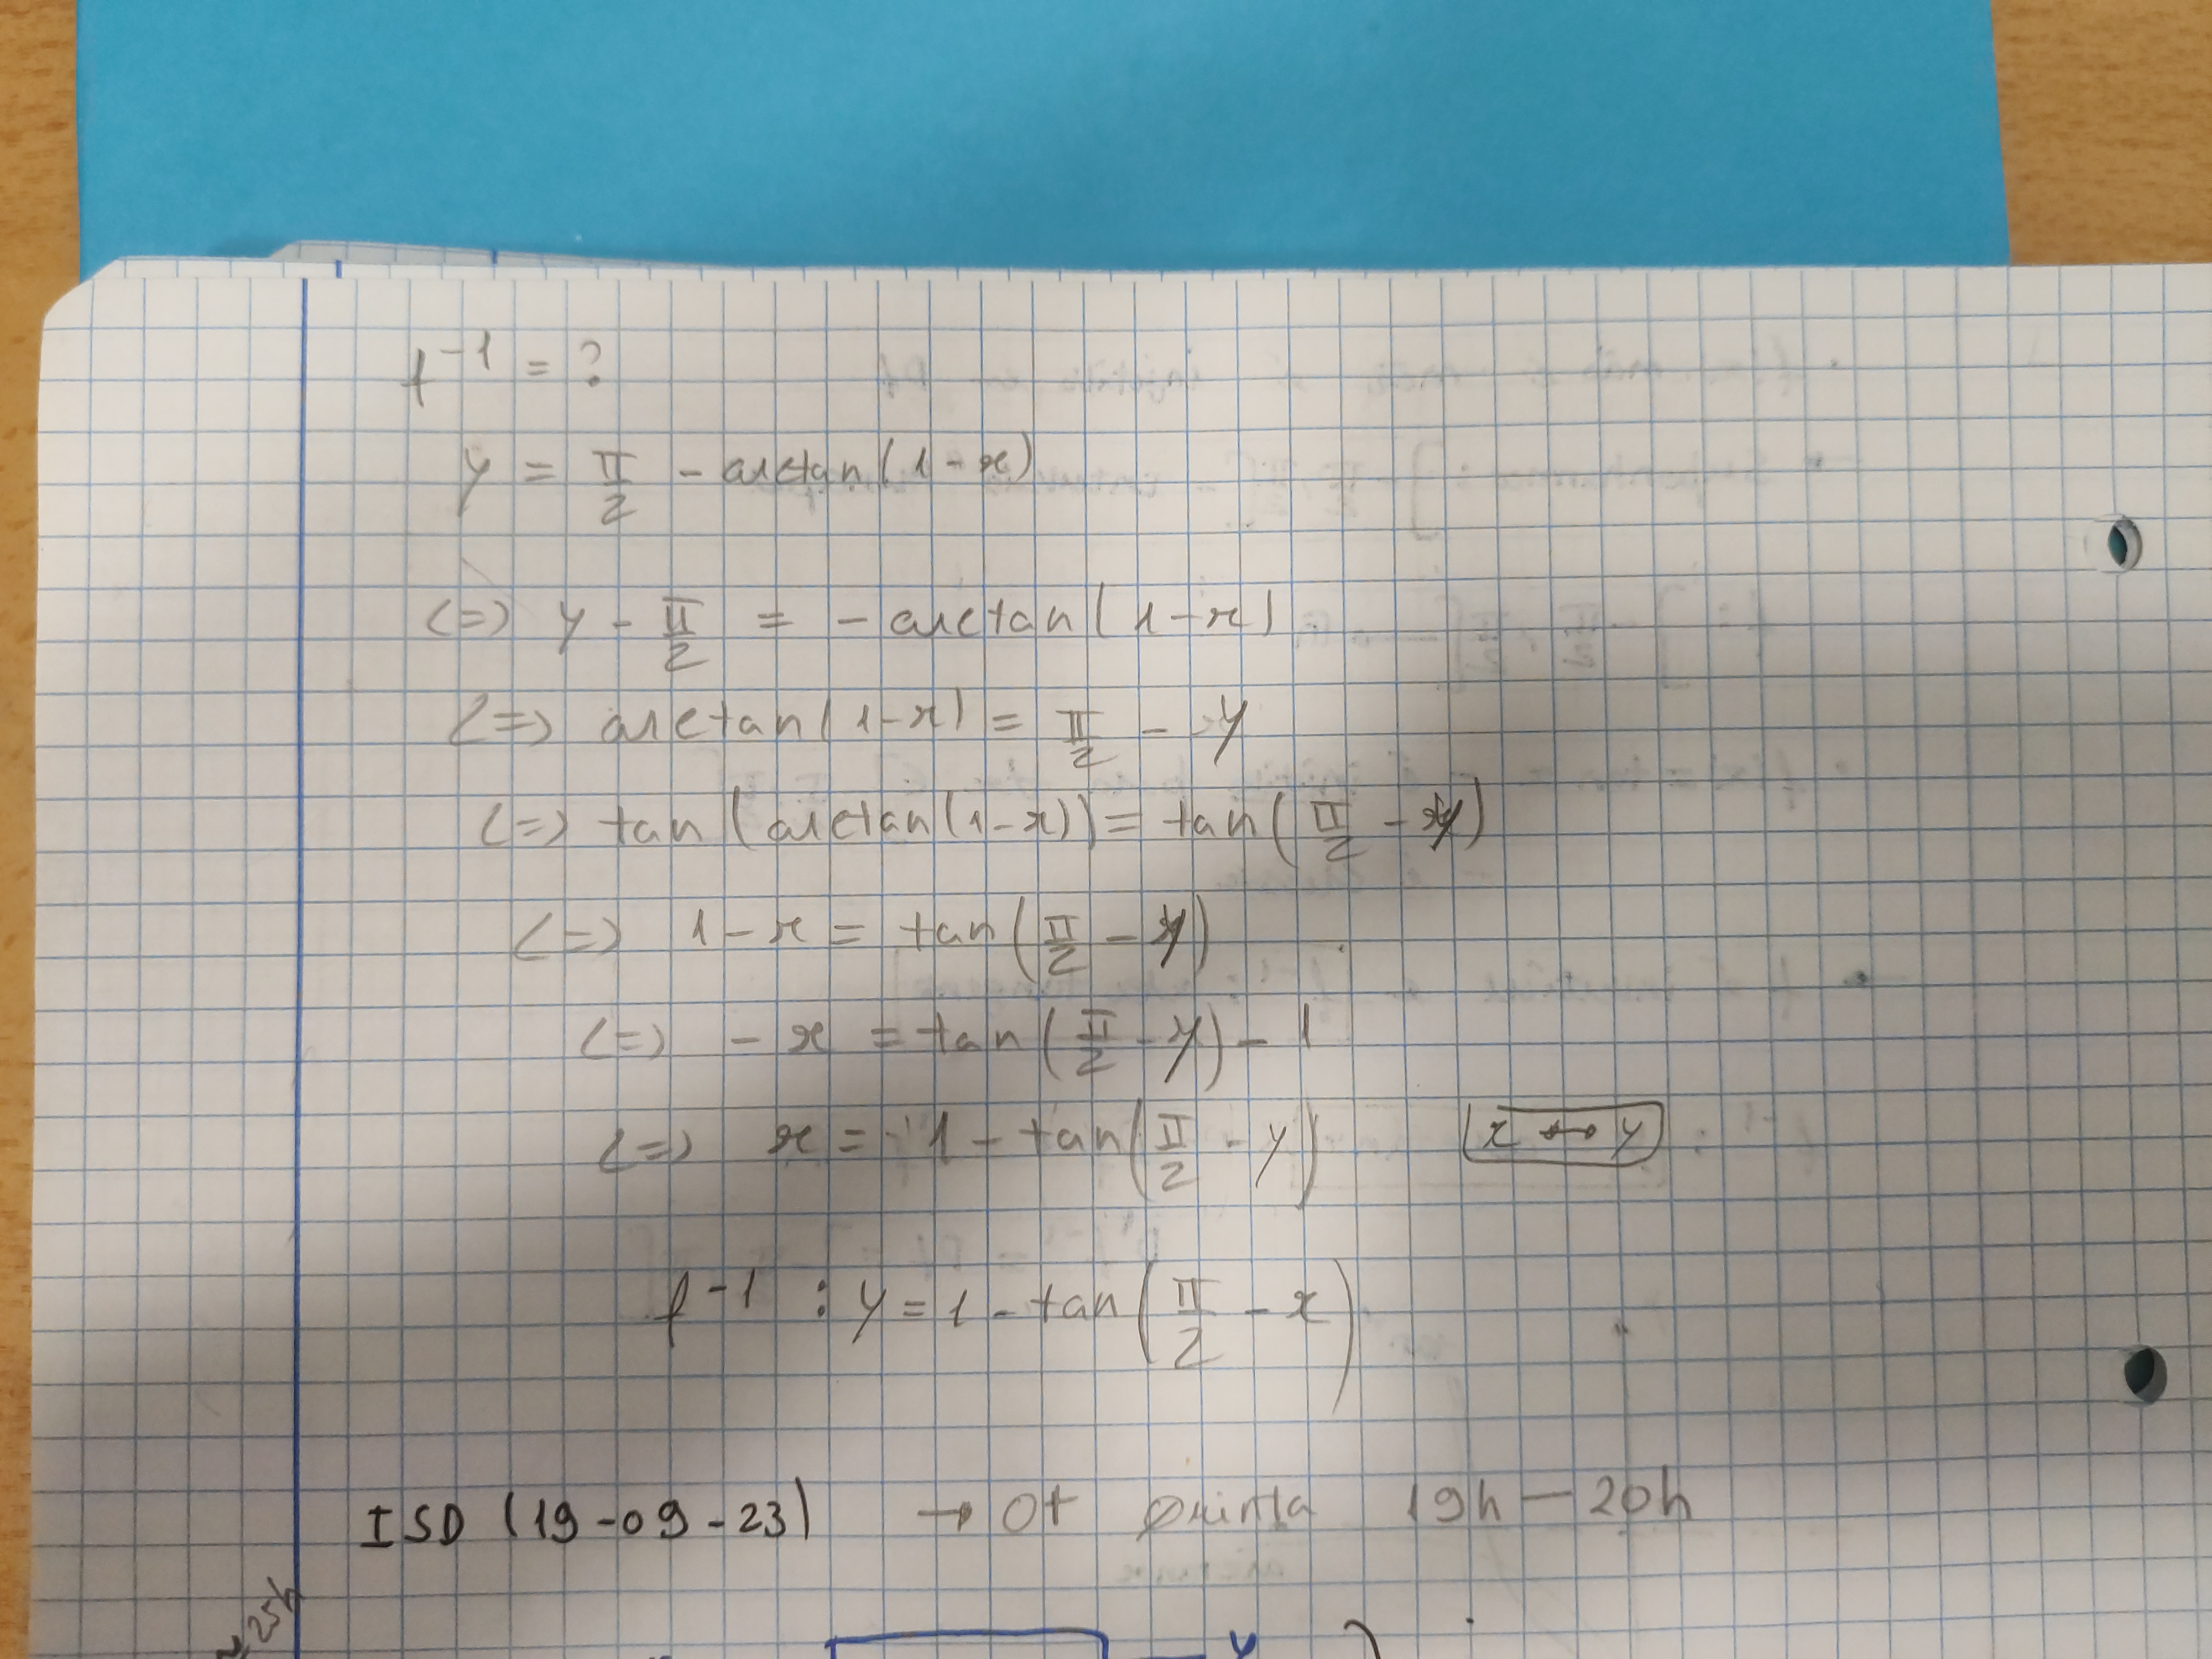 f⁻¹ = ?
y = π/2 - arctan(1-x)
<=> y - π/2 = - arctan(1-x)
<=> arctan(1-x) = π/2 - y
<=> tan(arctan(1-x)) = tan(π/2 - y)
<=> 1-x = tan(π/2 - y)
<=> -x = tan(π/2 - y) - 1
<=> x = 1 - tan(π/2 - y) x ↔ y
f⁻¹ : y = 1 - tan(π/2 - x)
ISD (19-09-23) → OT Quinta 19h — 20h
25h
y